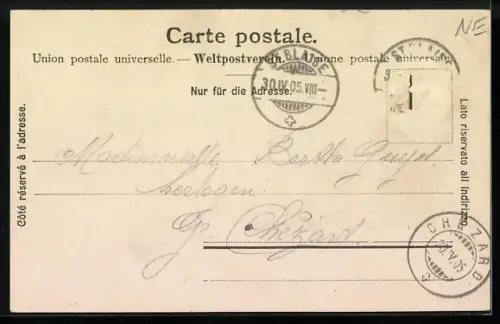 NE
Carte postale.
Union postale universelle. — Weltpostverein. — Unione postale universale
Nur für die Adresse.
ST. BLAISE
30.IV.05.VIII—
ST. BLAISE
Côté réservé à l'adresse.
Lato riservato all'indirizzo
Mademoiselle Bertha Guyot
Chézard
CHÉZARD
30.IV.05